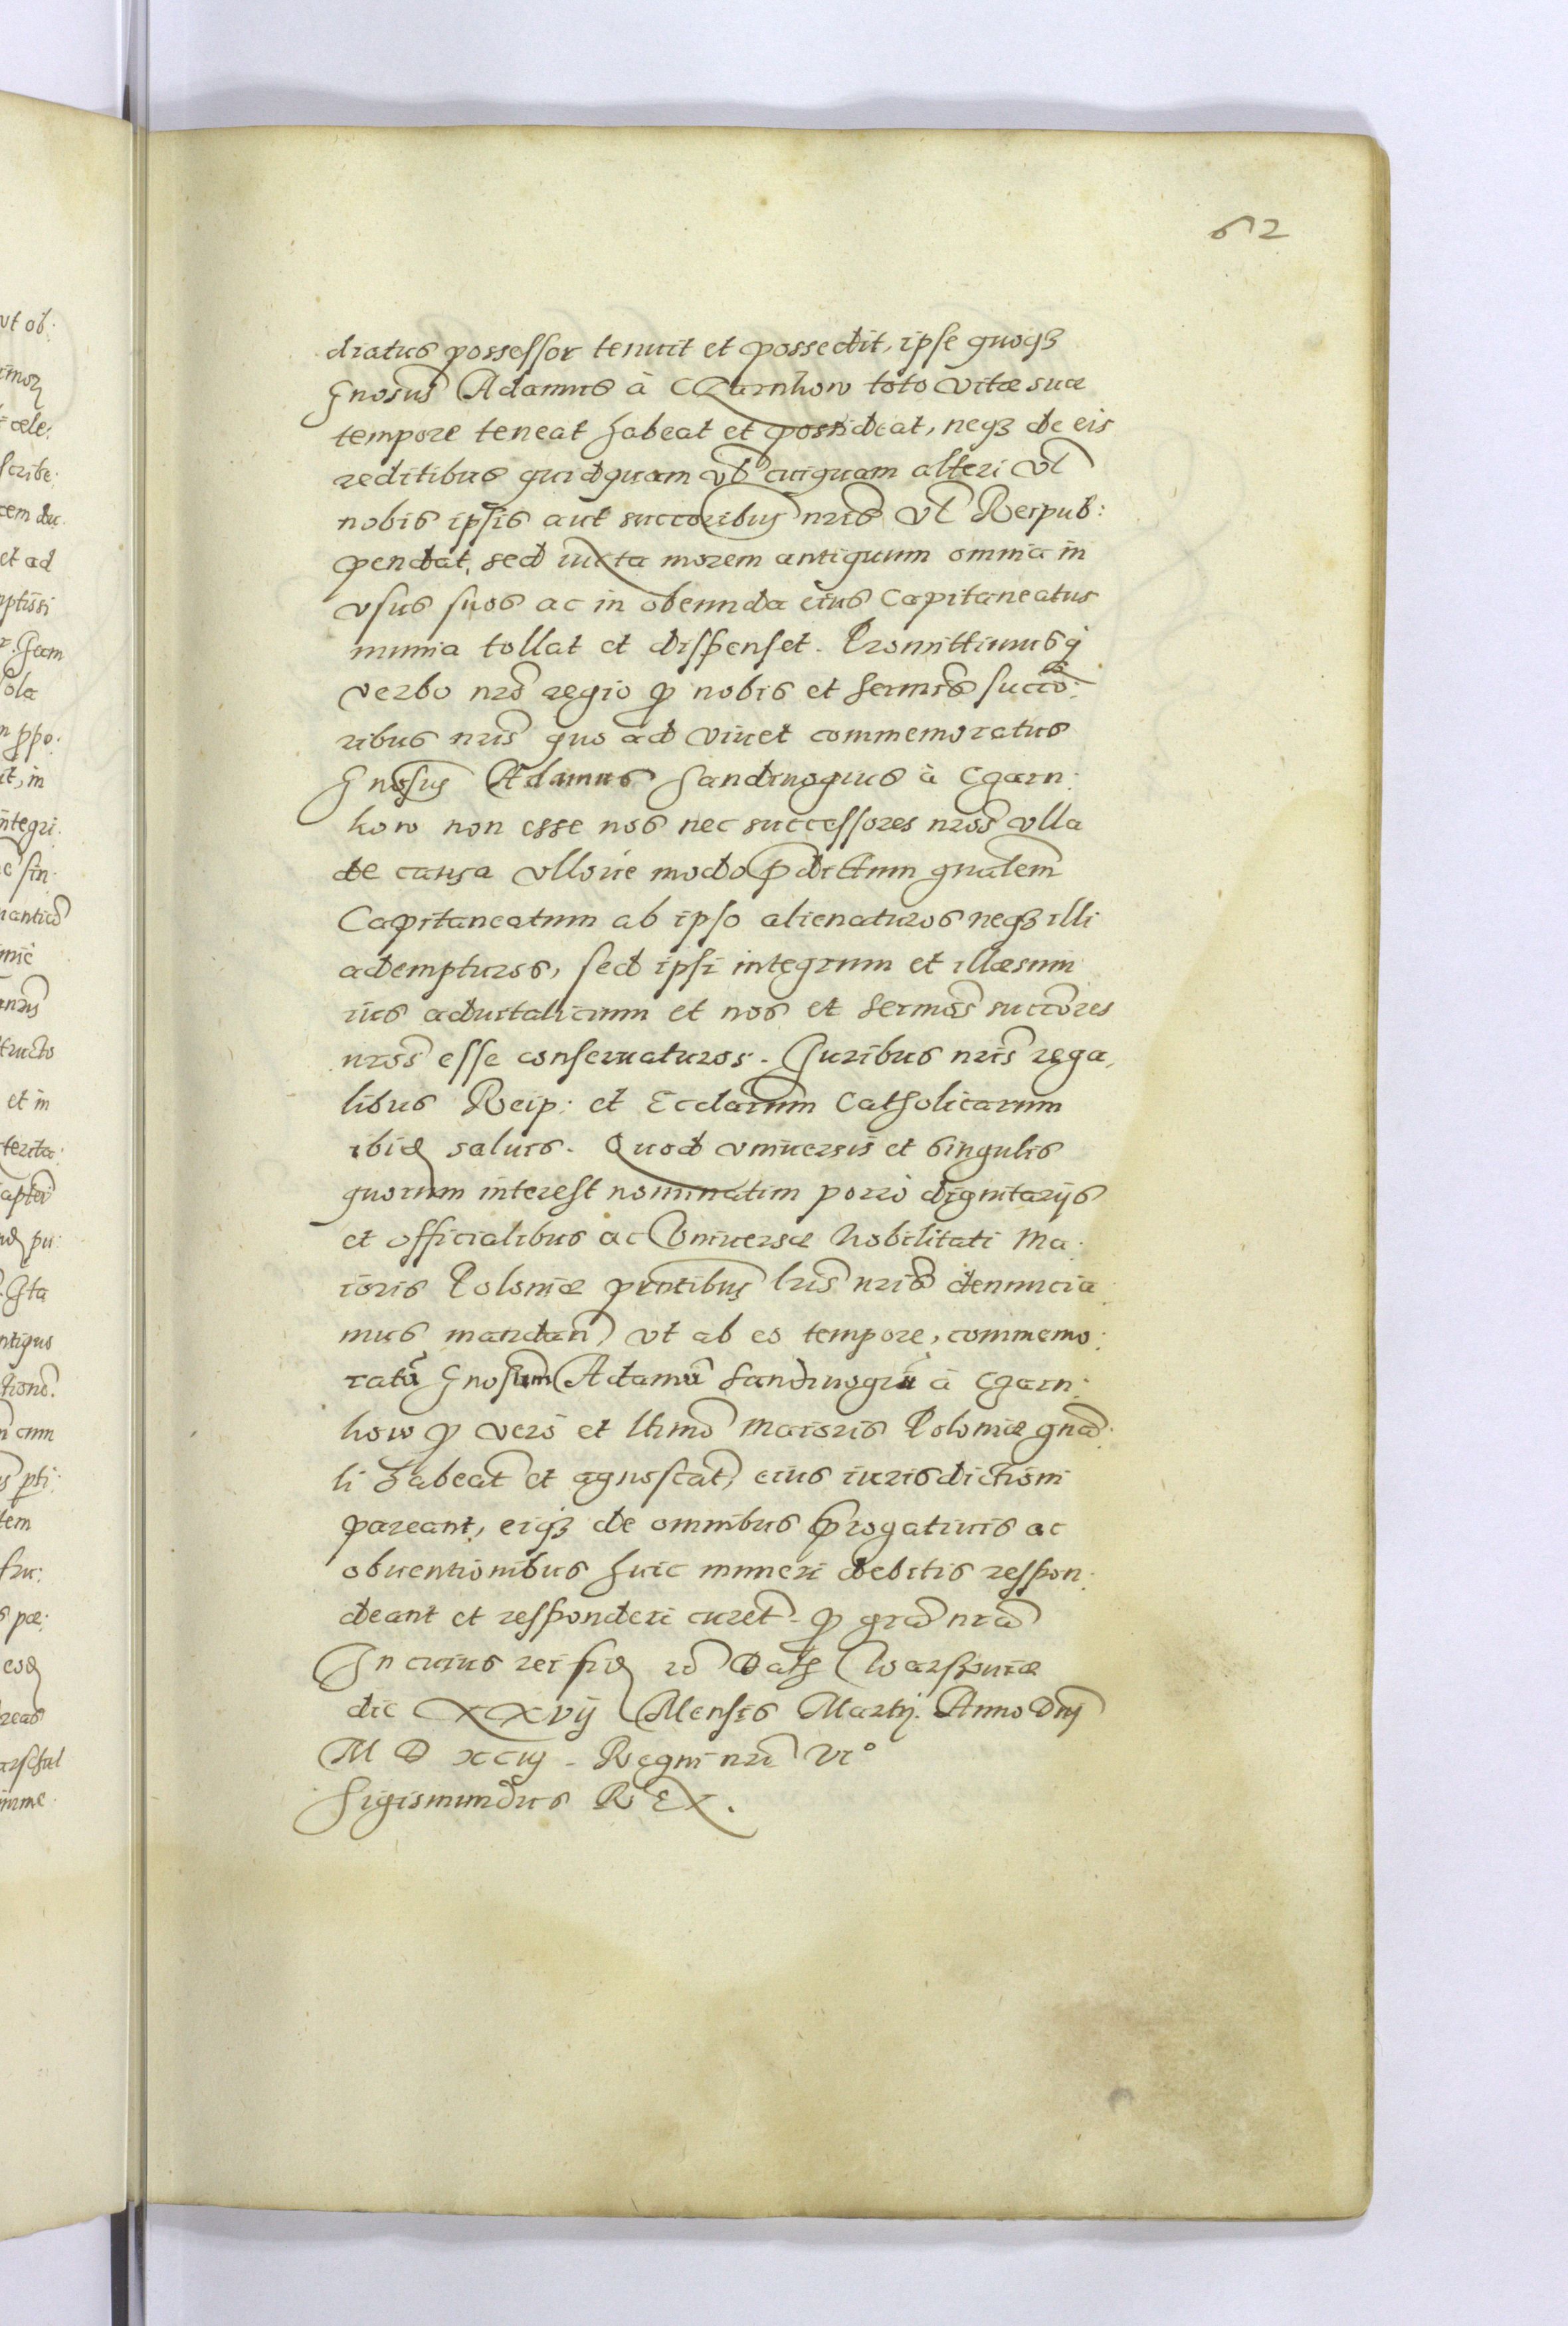 612
diatus possessor tenuit et possedit, ipse quoqȝ
Gnosus Adamus à CZarnkow toto vitæ suæ
tempore teneat habeat et possideat, neqȝ de eis
reditibus quidquam vl cuiquam alteri vl
nobis ipsis aut succoribus nris vl Reipub:
pendat, sed iuxta morem antiquum omnia in
vsus suos ac in obeunda eius Capitaneatus
munia tollat et dispenset. Promittimusq
verbo nro regio p nobis et sermis succo:
ribus nris quo ad viuet commemoratus
Gnosus Adamus Sandiuogius à Czarn:
kow non esse nos nec successores nros vlla
de causa vlloue modo pdictum gnalem
Capitaneatum ab ipso alienaturos neqȝ illi
adempturos, sed ipsi integrum et illæsum
ius aduitalicium et nos et sermos succores
nros esse conseruaturos. Iuribus nris rega,
libus Reip: et Eccliarum Catholicarum
ibid saluis. Quod vniuersis et singulis
quorum interest nominatim porrò dignitarijs
et officialibus ac Vniuersæ Nobilitati Ma:
ioris Poloniæ pntibus lris nris denuncia
mus mandan vt ab eo tempore, commemo:
ratū Gnosum Adamū Sandiuogiū à Czarn:
kow p vero et ltimo Maioris Poloniæ gna:
li habeat et agnoscat, eius iurisdictioni
pareant, eiqȝ de omnibus progatiuis ac
obuentionibus huic muneri debitis respon:
deant et responderi curet. p gra nra
In cuius rei fid Dat Warschouiæ
die XXvij Mensis Martij. Anno Dnj
M D xciij. Regni nri vi°
Sigismundus REX.